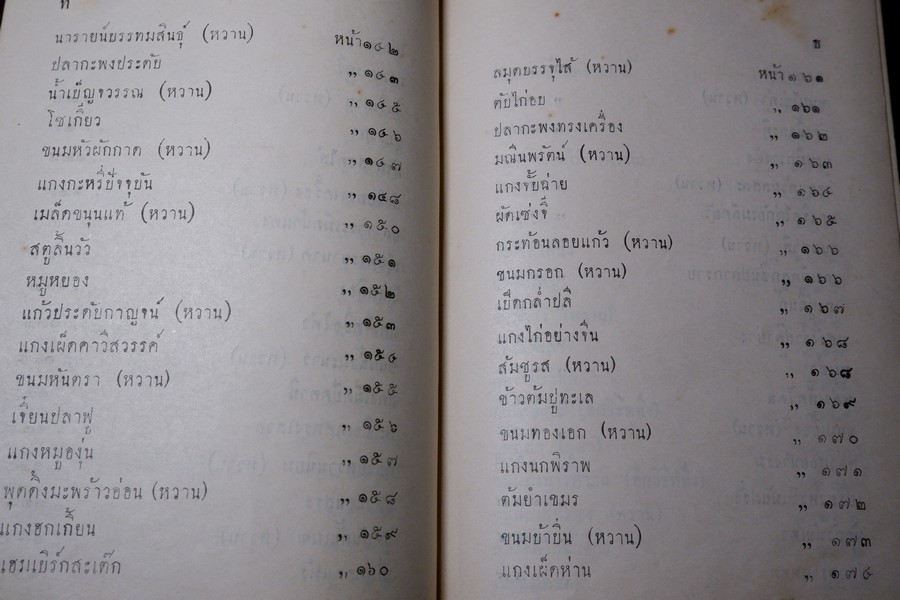 ท
นารายน์บรรทมสินธุ์ (หวาน) หน้า ๑๔๒
ปลากะพงประดับ ,, ๑๔๓
น้ำเย็ญจวรรณ (หวาน) ,, ๑๔๕
โซเกี๊ยว ,, ๑๔๖
ขนมหัวผักกาด (หวาน) ,, ๑๔๗
แกงกะหรี่ปัจจุบัน ,, ๑๔๘
เมล็ดขนุนแท้ (หวาน) ,, ๑๕๐
สตูลิ้นวัว ,, ๑๕๑
หมูหยอง ,, ๑๕๒
แก้วประดับกาญจน์ (หวาน) ,, ๑๕๓
แกงเผ็ดคาวีสวรรค์ ,, ๑๕๔
ขนมหันตรา (หวาน) ,, ๑๕๕
เจี๋ยนปลาฟู ,, ๑๕๖
แกงหมูองุ่น ,, ๑๕๗
พุดดิ้งมะพร้าวอ่อน (หวาน) ,, ๑๕๘
แกงฮกเกี้ยน ,, ๑๕๙
แฮมเบิร์กสะเต๊ก ,, ๑๖๐
ธ
สมุดบรรจุไส้ (หวาน) หน้า ๑๖๑
ตับไก่อบ ,, ๑๖๑
ปลากะพงทรงเครื่อง ,, ๑๖๒
มณีนพรัตน์ (หวาน) ,, ๑๖๓
แกงจับฉ่าย ,, ๑๖๔
ผัดเซ่งจี๊ ,, ๑๖๕
กระท้อนลอยแก้ว (หวาน) ,, ๑๖๖
ขนมกรอก (หวาน) ,, ๑๖๖
เป็ดกล่ำปลี ,, ๑๖๗
แกงไก่อย่างจีน ,, ๑๖๘
ส้มชูรส (หวาน) ,, ๑๖๘
ข้าวต้มปูทะเล ,, ๑๖๙
ขนมทองเอก (หวาน) ,, ๑๗๐
แกงนกพิราพ ,, ๑๗๑
ต้มยำเขมร ,, ๑๗๒
ขนมย้าบิ่น (หวาน) ,, ๑๗๓
แกงเผ็ดห่าน ,, ๑๗๔